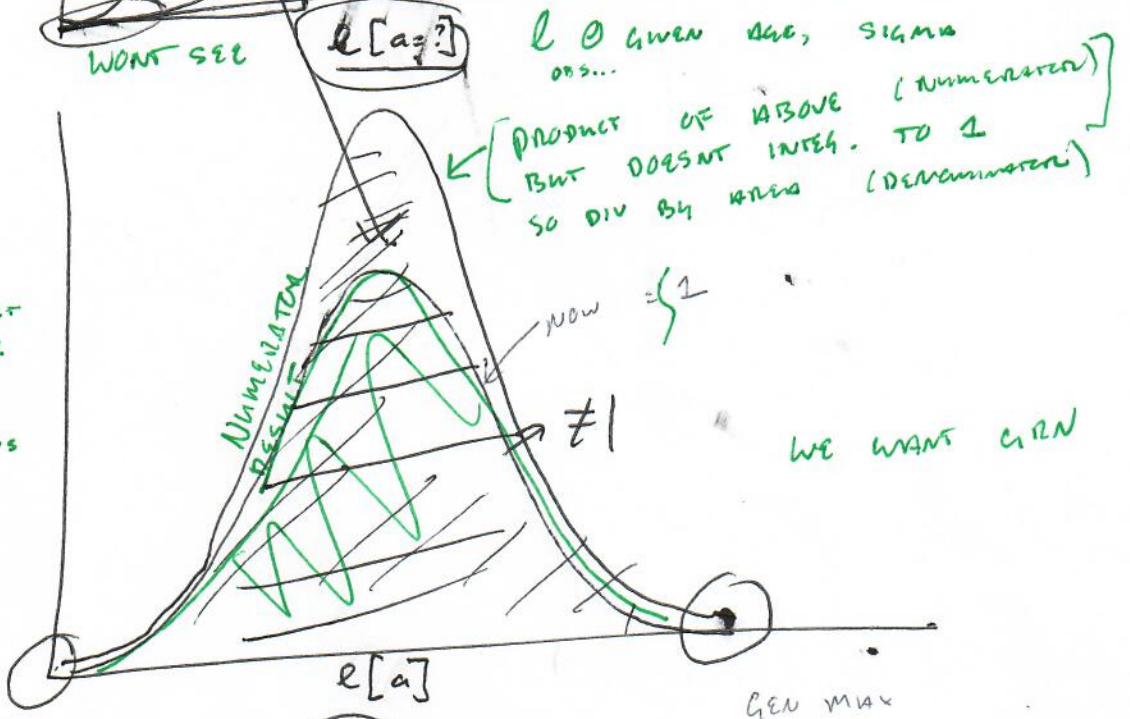 WONT SEE
l[a=?]
l @ GIVEN AGE, SIGMA
OBS...
[PRODUCT OF ABOVE (NUMERATOR)
BUT DOESNT INTEG. TO 1]
SO DIV BY AREA (DENOMINATOR)
NUMERATOR
RESULT
NOW =∫1
≠1
WE WANT GRN
l[a]
GEN MAX